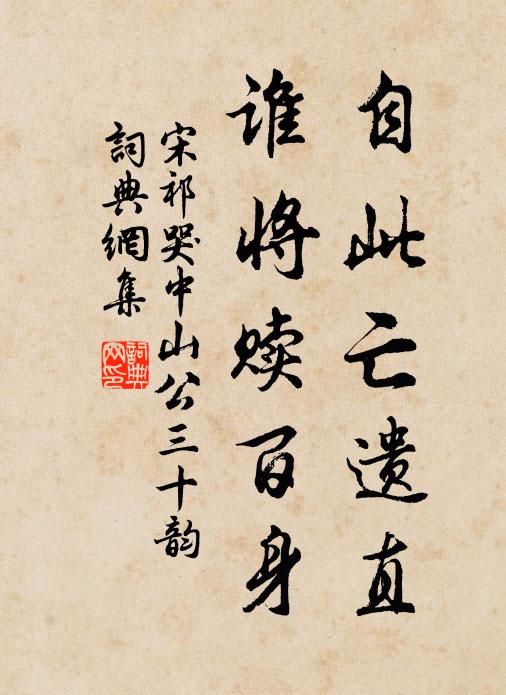 自此亡遗直
谁将赎百身
宋祁哭中山公三十韵
詞典網集
詞典網印